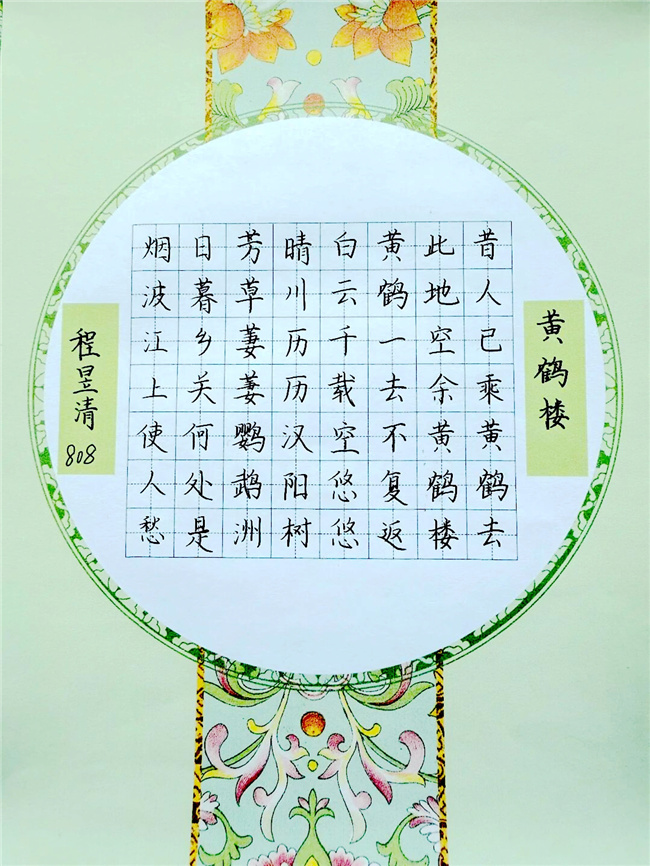 黄鹤楼
昔人已乘黄鹤去
此地空余黄鹤楼
黄鹤一去不复返
白云千载空悠悠
晴川历历汉阳树
芳草萋萋鹦鹉洲
日暮乡关何处是
烟波江上使人愁
程昱清
808